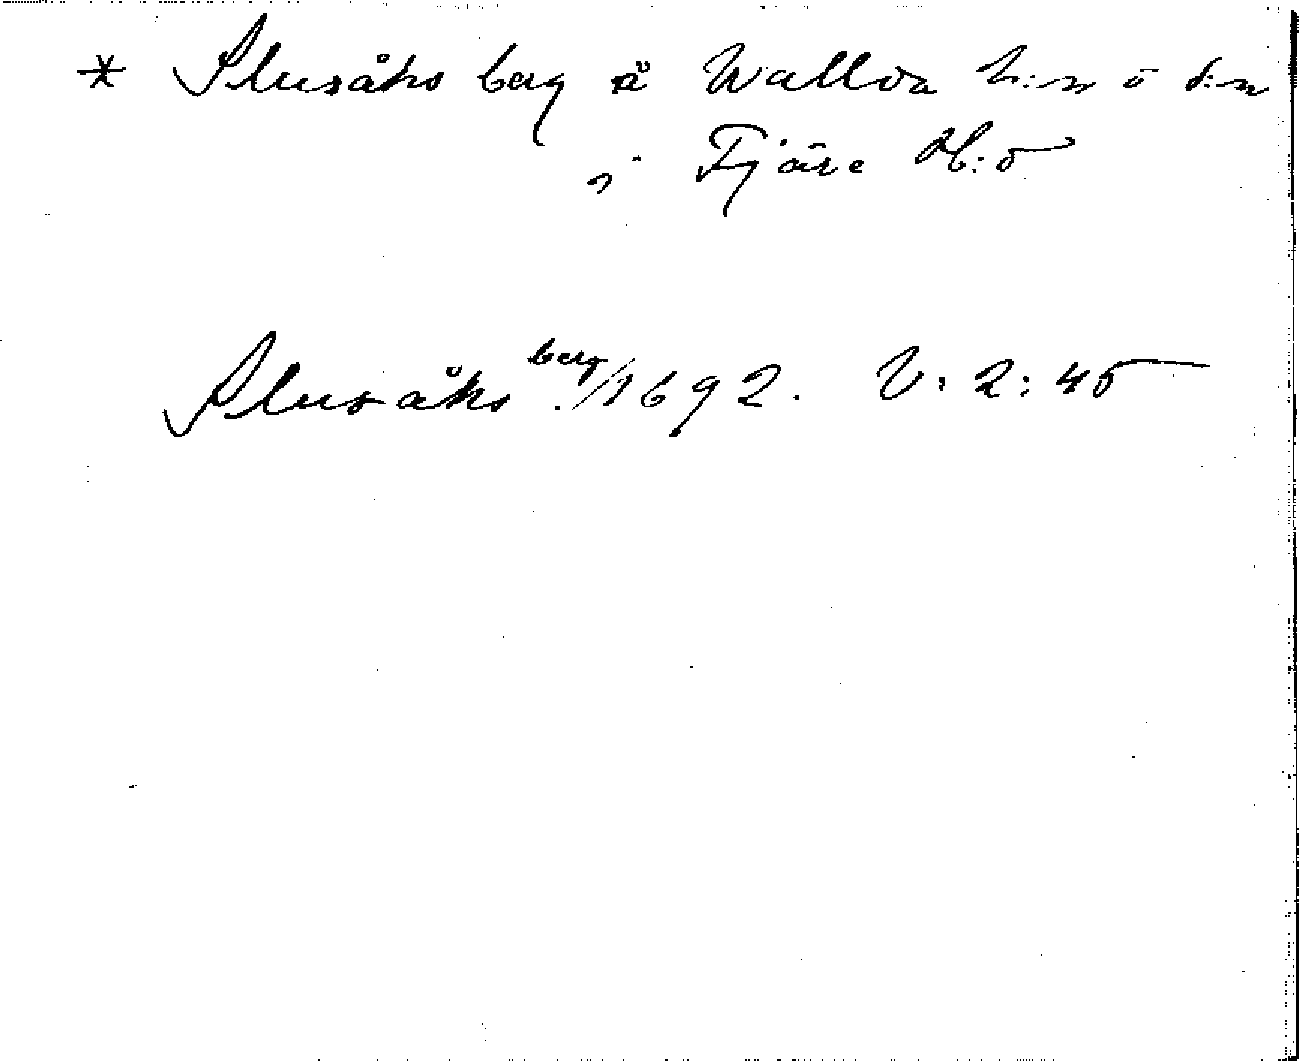 * Slusåks berg å Wallda h:n o s:n
i Fjäre H:d
Slusåks berg /1692. V: 2: 45